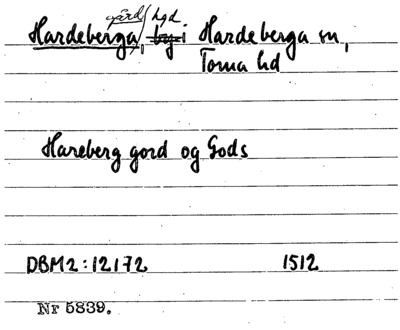 gård/hgd
Hardeberga, by i Hardeberga sn,
Torna hd
Hareberg gord og Gods
DBM2:12172 1512
Nr 5839.